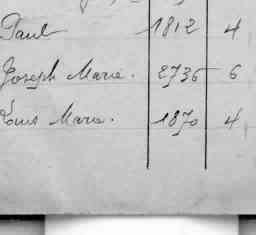 Paul 1812 4
Joseph Marie. 2736 6
Louis Marie. 1870 4